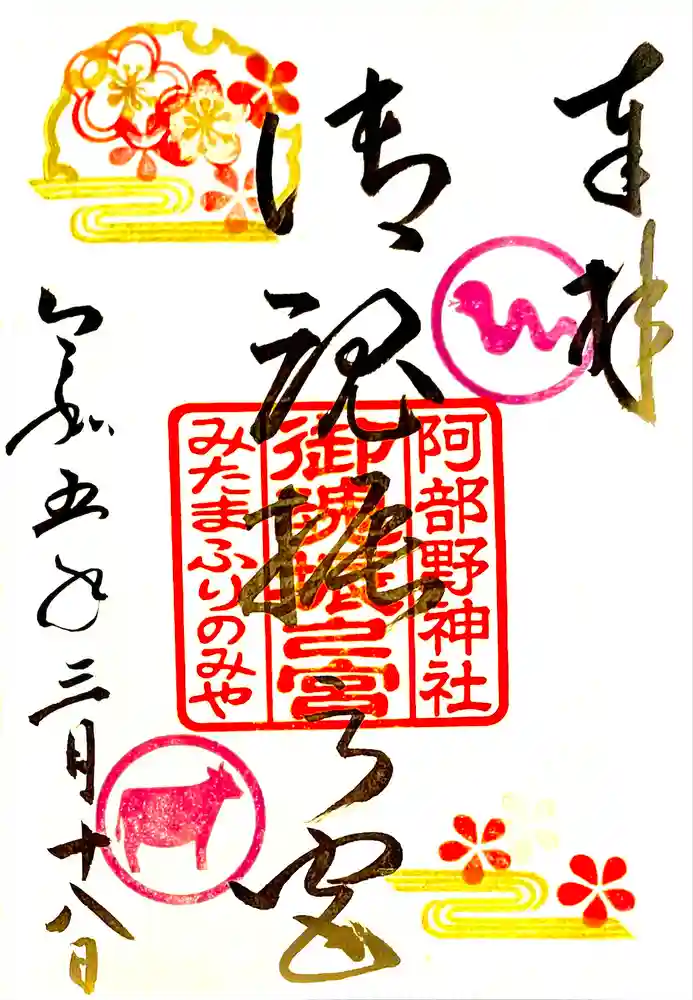 奉拝
阿部野神社
御魂振之宮
みたまふりのみや
御魂振之宮
令和五年三月十八日